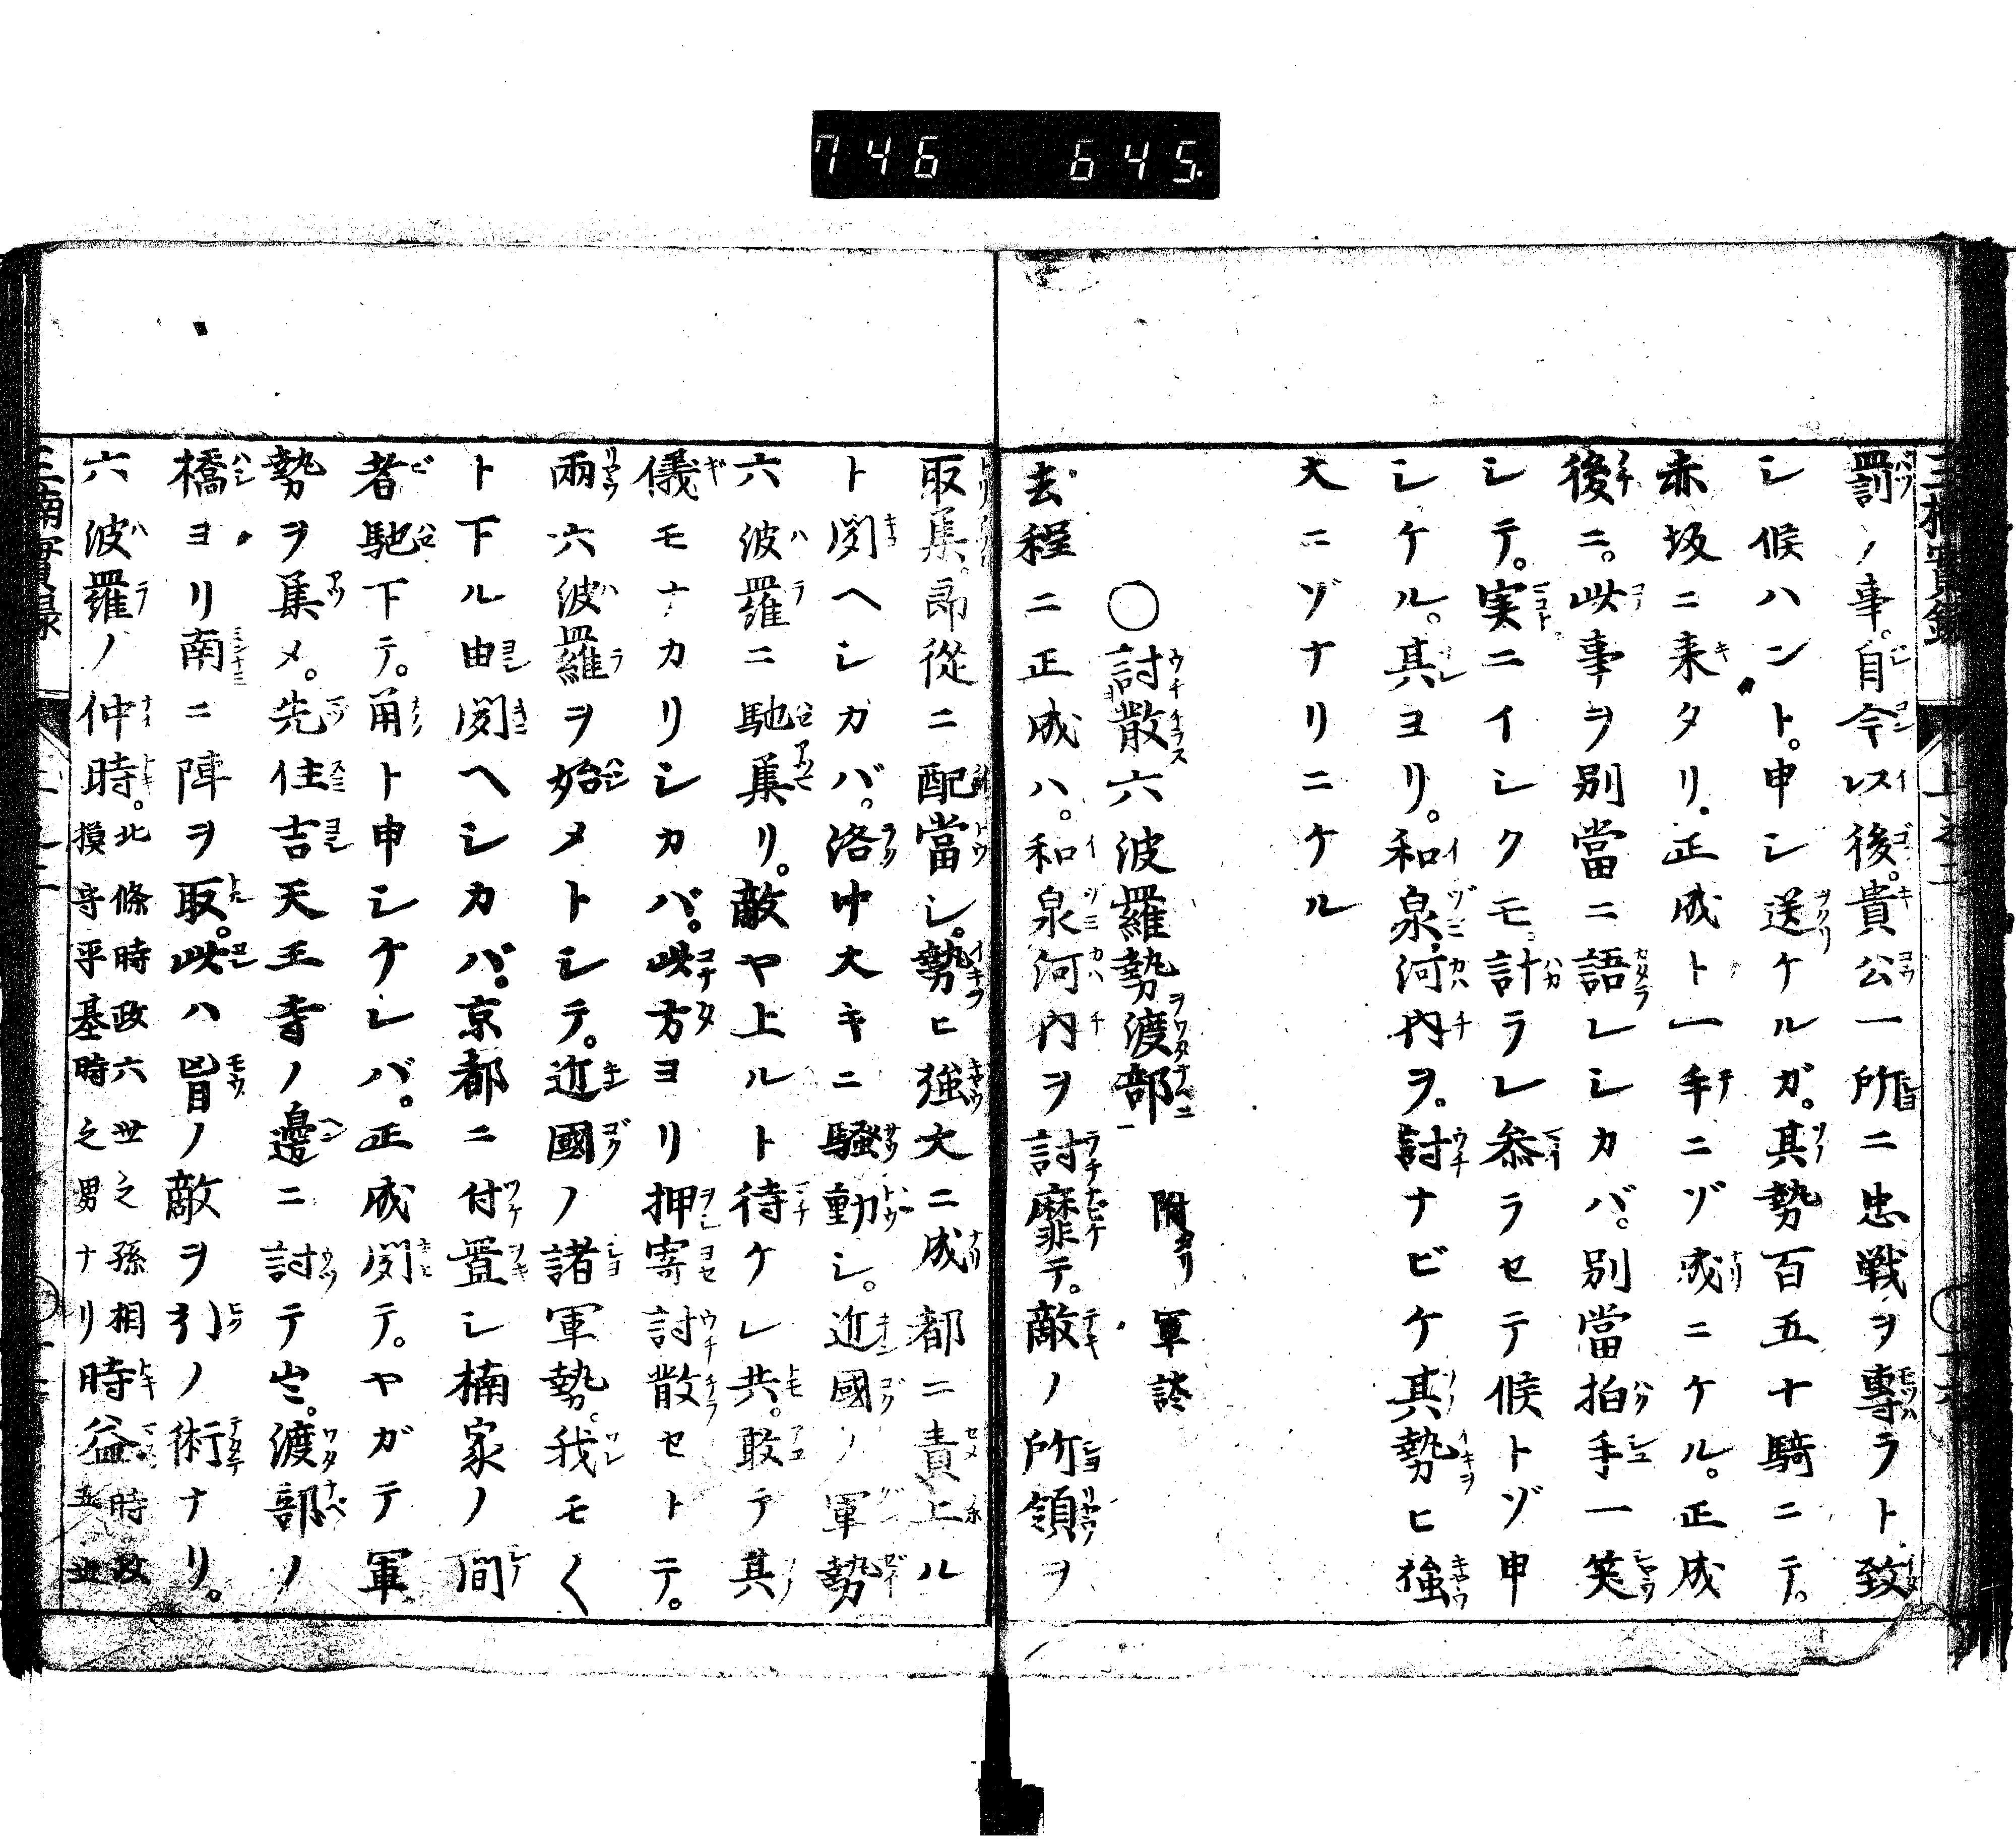 746 645
罰ノ事。自今以後。貴公一所ニ忠戦ヲ專ラト致
シ候ハント。申シ送ケルガ。其勢百五十騎ニテ。
赤坂ニ来タリ。正成ト一手ニゾ成ニケル。正成
後ニ。此事ヲ別當ニ語レシカバ。別當拍手一笑
シテ。実ニイシクモ計ラレ参ラセテ候トゾ申
シケル。其ヨリ。和泉河内ヲ。討ナビケ其勢ヒ強
大ニゾナリニケル
〇討散六波羅勢渡部 附タリ 軍談
去程ニ正成ハ。和泉河内ヲ討靡テ。敵ノ所領ヲ
取集。郎從ニ配當シ。勢ヒ強大ニ成都ニ責上ル
ト聞ヘシカバ。洛中大キニ騒動シ。近國ノ軍勢
六波羅ニ馳集リ。敵ヤ上ルト待ケレ共。敢テ其
儀モナカリシカバ。此方ヨリ押寄討散セトテ。
兩六波羅ヲ始メトシテ。近國ノ諸軍勢。我モく
ト下ル由聞ヘシカバ。京都ニ付置シ楠家ノ間
者馳下テ。甬ト申シケレバ。正成聞テ。ヤガテ軍
勢ヲ集メ。先住吉天王寺ノ邊ニ討テ出。渡部ノ
橋ヨリ南ニ陣ヲ取。此ハ盲ノ敵ヲ引ノ術ナリ。
六波羅ノ仲時。北條時政六世之孫相摸守平基時之男ナリ時益時政五世
三楠實録